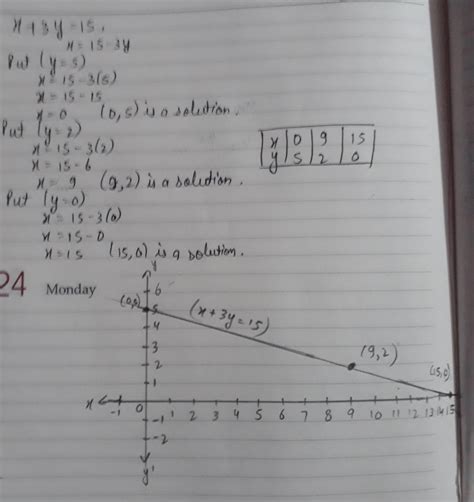 x + 3y = 15,
x = 15 - 3y
Put (y = 5)
x = 15 - 3(5)
x = 15 - 15
x = 0 (0,5) is a solution.
Put (y = 2)
x = 15 - 3(2)
x = 15 - 6
x = 9 (9,2) is a solution.
x | 0 | 9 | 15
y | 5 | 2 | 0
Put (y = 0)
x = 15 - 3(0)
x = 15 - 0
x = 15 (15,0) is a solution.
24 Monday
y
6
(0,5) 5 (x + 3y = 15)
4
3 (9,2)
2
1 (15,0)
x -1 0 1 2 3 4 5 6 7 8 9 10 11 12 13 14 15
-1
-2
y'